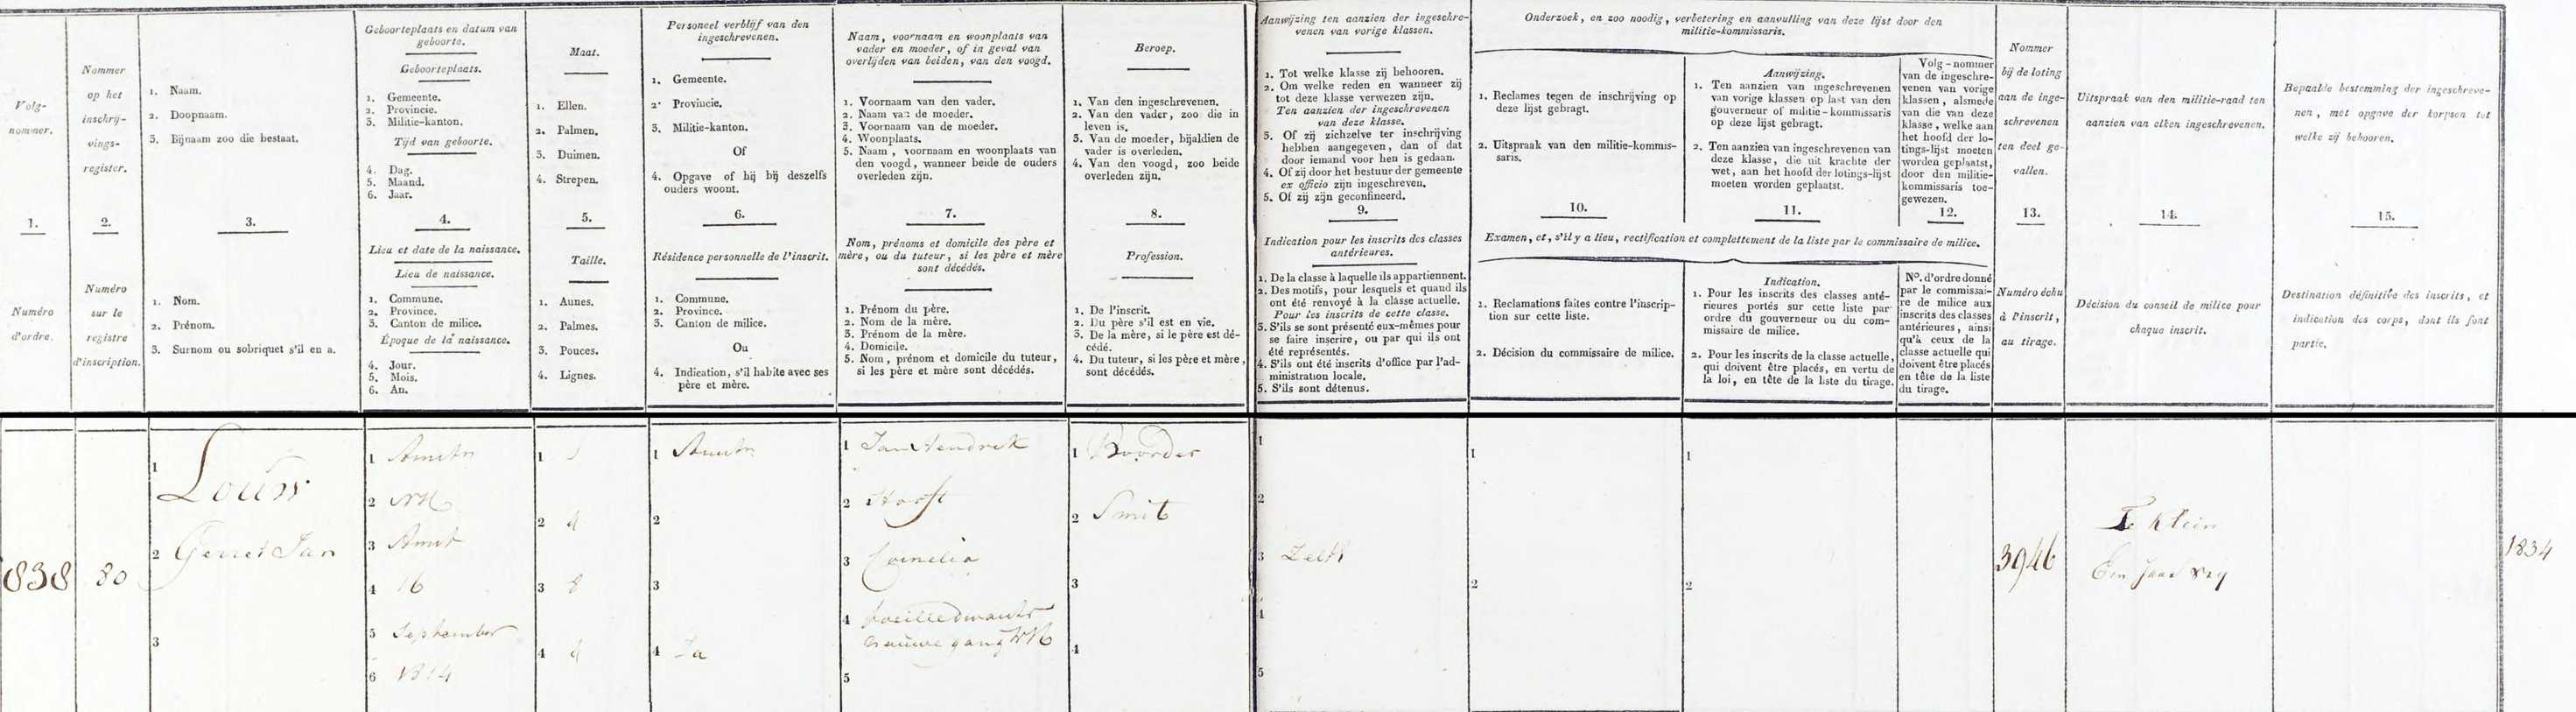 Volg-
nommer.
1.
Numéro
d'ordre.
Nommer
op het
inschrij-
vings-
register.
2.
Numéro
sur le
registre
d'inscription.
1. Naam.
2. Doopnaam.
3. Bijnaam zoo die bestaat.
3.
1. Nom.
2. Prénom.
3. Surnom ou sobriquet s'il en a.
Geboorteplaats en datum van
geboorte.
Geboorteplaats.
1. Gemeente.
2. Provincie.
3. Militie-kanton.
Tijd van geboorte.
4. Dag.
5. Maand.
6. Jaar.
4.
Lieu et date de la naissance.
Lieu de naissance.
1. Commune.
2. Province.
3. Canton de milice.
Époque de la naissance.
4. Jour.
5. Mois.
6. An.
Maat.
1. Ellen.
2. Palmen.
3. Duimen.
4. Strepen.
5.
Taille.
1. Aunes.
2. Palmes.
3. Pouces.
4. Lignes.
Personeel verblijf van den
ingeschrevenen.
1. Gemeente.
2. Provincie.
3. Militie-kanton.
Of
4. Opgave of hij bij deszelfs
ouders woont.
6.
Résidence personnelle de l'inscrit.
1. Commune.
2. Province.
3. Canton de milice.
Ou
4. Indication, s'il habite avec ses
père et mère.
Naam, voornaam en woonplaats van
vader en moeder, of in geval van
overlijden van beiden, van den voogd.
1. Voornaam van den vader.
2. Naam van de moeder.
3. Voornaam van de moeder.
4. Woonplaats.
5. Naam, voornaam en woonplaats van
den voogd, wanneer beide de ouders
overleden zijn.
7.
Nom, prénoms et domicile des père et
mère, ou du tuteur, si les père et mère
sont décédés.
1. Prénom du père.
2. Nom de la mère.
3. Prénom de la mère.
4. Domicile.
5. Nom, prénom et domicile du tuteur,
si les père et mère sont décédés.
Beroep.
1. Van den ingeschrevenen.
2. Van den vader, zoo die in
leven is.
3. Van de moeder, bijaldien de
vader is overleden.
4. Van den voogd, zoo beide
overleden zijn.
8.
Profession.
1. De l'inscrit.
2. Du père s'il est en vie.
3. De la mère, si le père est dé-
cédé.
4. Du tuteur, si les père et mère,
sont décédés.
Aanwijzing ten aanzien der ingeschre-
venen van vorige klassen.
1. Tot welke klasse zij behooren.
2. Om welke reden en wanneer zij
tot deze klasse verwezen zijn.
Ten aanzien der ingeschrevenen
van deze klasse.
3. Of zij zichzelve ter inschrijving
hebben aangegeven, dan of dat
door iemand voor hen is gedaan.
4. Of zij door het bestuur der gemeente
ex officio zijn ingeschreven.
5. Of zij zijn geconfineerd.
9.
Indication pour les inscrits des classes
antérieures.
1. De la classe à laquelle ils appartiennent.
2. Des motifs, pour lesquels et quand ils
ont été renvoyé à la classe actuelle.
Pour les inscrits de cette classe.
3. S'ils se sont présenté eux-mêmes pour
se faire inscrire, ou par qui ils ont
été représentés.
4. S'ils ont été inscrits d'office par l'ad-
ministration locale.
5. S'ils sont détenus.
Onderzoek, en zoo noodig, verbetering en aanvulling van deze lijst door den
militie-kommissaris.
1. Reclames tegen de inschrijving op
deze lijst gebragt.
2. Uitspraak van den militie-kommis-
saris.
10.
Aanwijzing.
1. Ten aanzien van ingeschrevenen
van vorige klassen op last van den
gouverneur of militie-kommissaris
op deze lijst gebragt.
2. Ten aanzien van ingeschrevenen van
deze klasse, die uit krachte der
wet, aan het hoofd der lotings-lijst
moeten worden geplaatst.
11.
Volg-nommer
van de ingeschre-
venen van vorige
klassen, alsmede
van die van deze
klasse, welke aan
het hoofd der lo-
tings-lijst moeten
worden geplaatst,
door den militie-
kommissaris toe-
gewezen.
12.
Examen, et, s'il y a lieu, rectification et complettement de la liste par le commissaire de milice.
1. Reclamations faites contre l'inscrip-
tion sur cette liste.
2. Décision du commissaire de milice.
Indication.
1. Pour les inscrits des classes anté-
rieures portés sur cette liste par
ordre du gouverneur ou du com-
missaire de milice.
2. Pour les inscrits de la classe actuelle,
qui doivent être placés, en vertu de
la loi, en tête de la liste du tirage.
N°. d'ordre donné
par le commissai-
re de milice aux
inscrits des classes
antérieures, ainsi
qu'à ceux de la
classe actuelle qui
doivent être placés
en tête de la liste
du tirage.
Nommer
bij de loting
aan de inge-
schrevenen
ten deel ge-
vallen.
13.
Numéro échu
à l'inscrit,
au tirage.
Uitspraak van den militie-raad ten
aanzien van elken ingeschrevenen.
14.
Décision du conseil de milice pour
chaque inscrit.
Bepaalde bestemming der ingeschreve-
nen, met opgave der korpsen tot
welke zij behooren.
15.
Destination définitive des inscrits, et
indication des corps, dont ils font
partie.
838
80
1 Louis
2 Gerret Jan
3
1 Amstm
2 NH
3 Amst
4 16
5 September
6 1814
1 1
2 4
3 8
4 4
1 Amstm
2
3
4 Ja
1 Jan Hendrik
2 Hooft
3 Cornelia
4
nauwe gang
5
1 Boorder
2 Smit
3
4
1
2
3 Zelf
4
5
1
2
1
2
3946
Te Klein
Een Jaar vry
1834